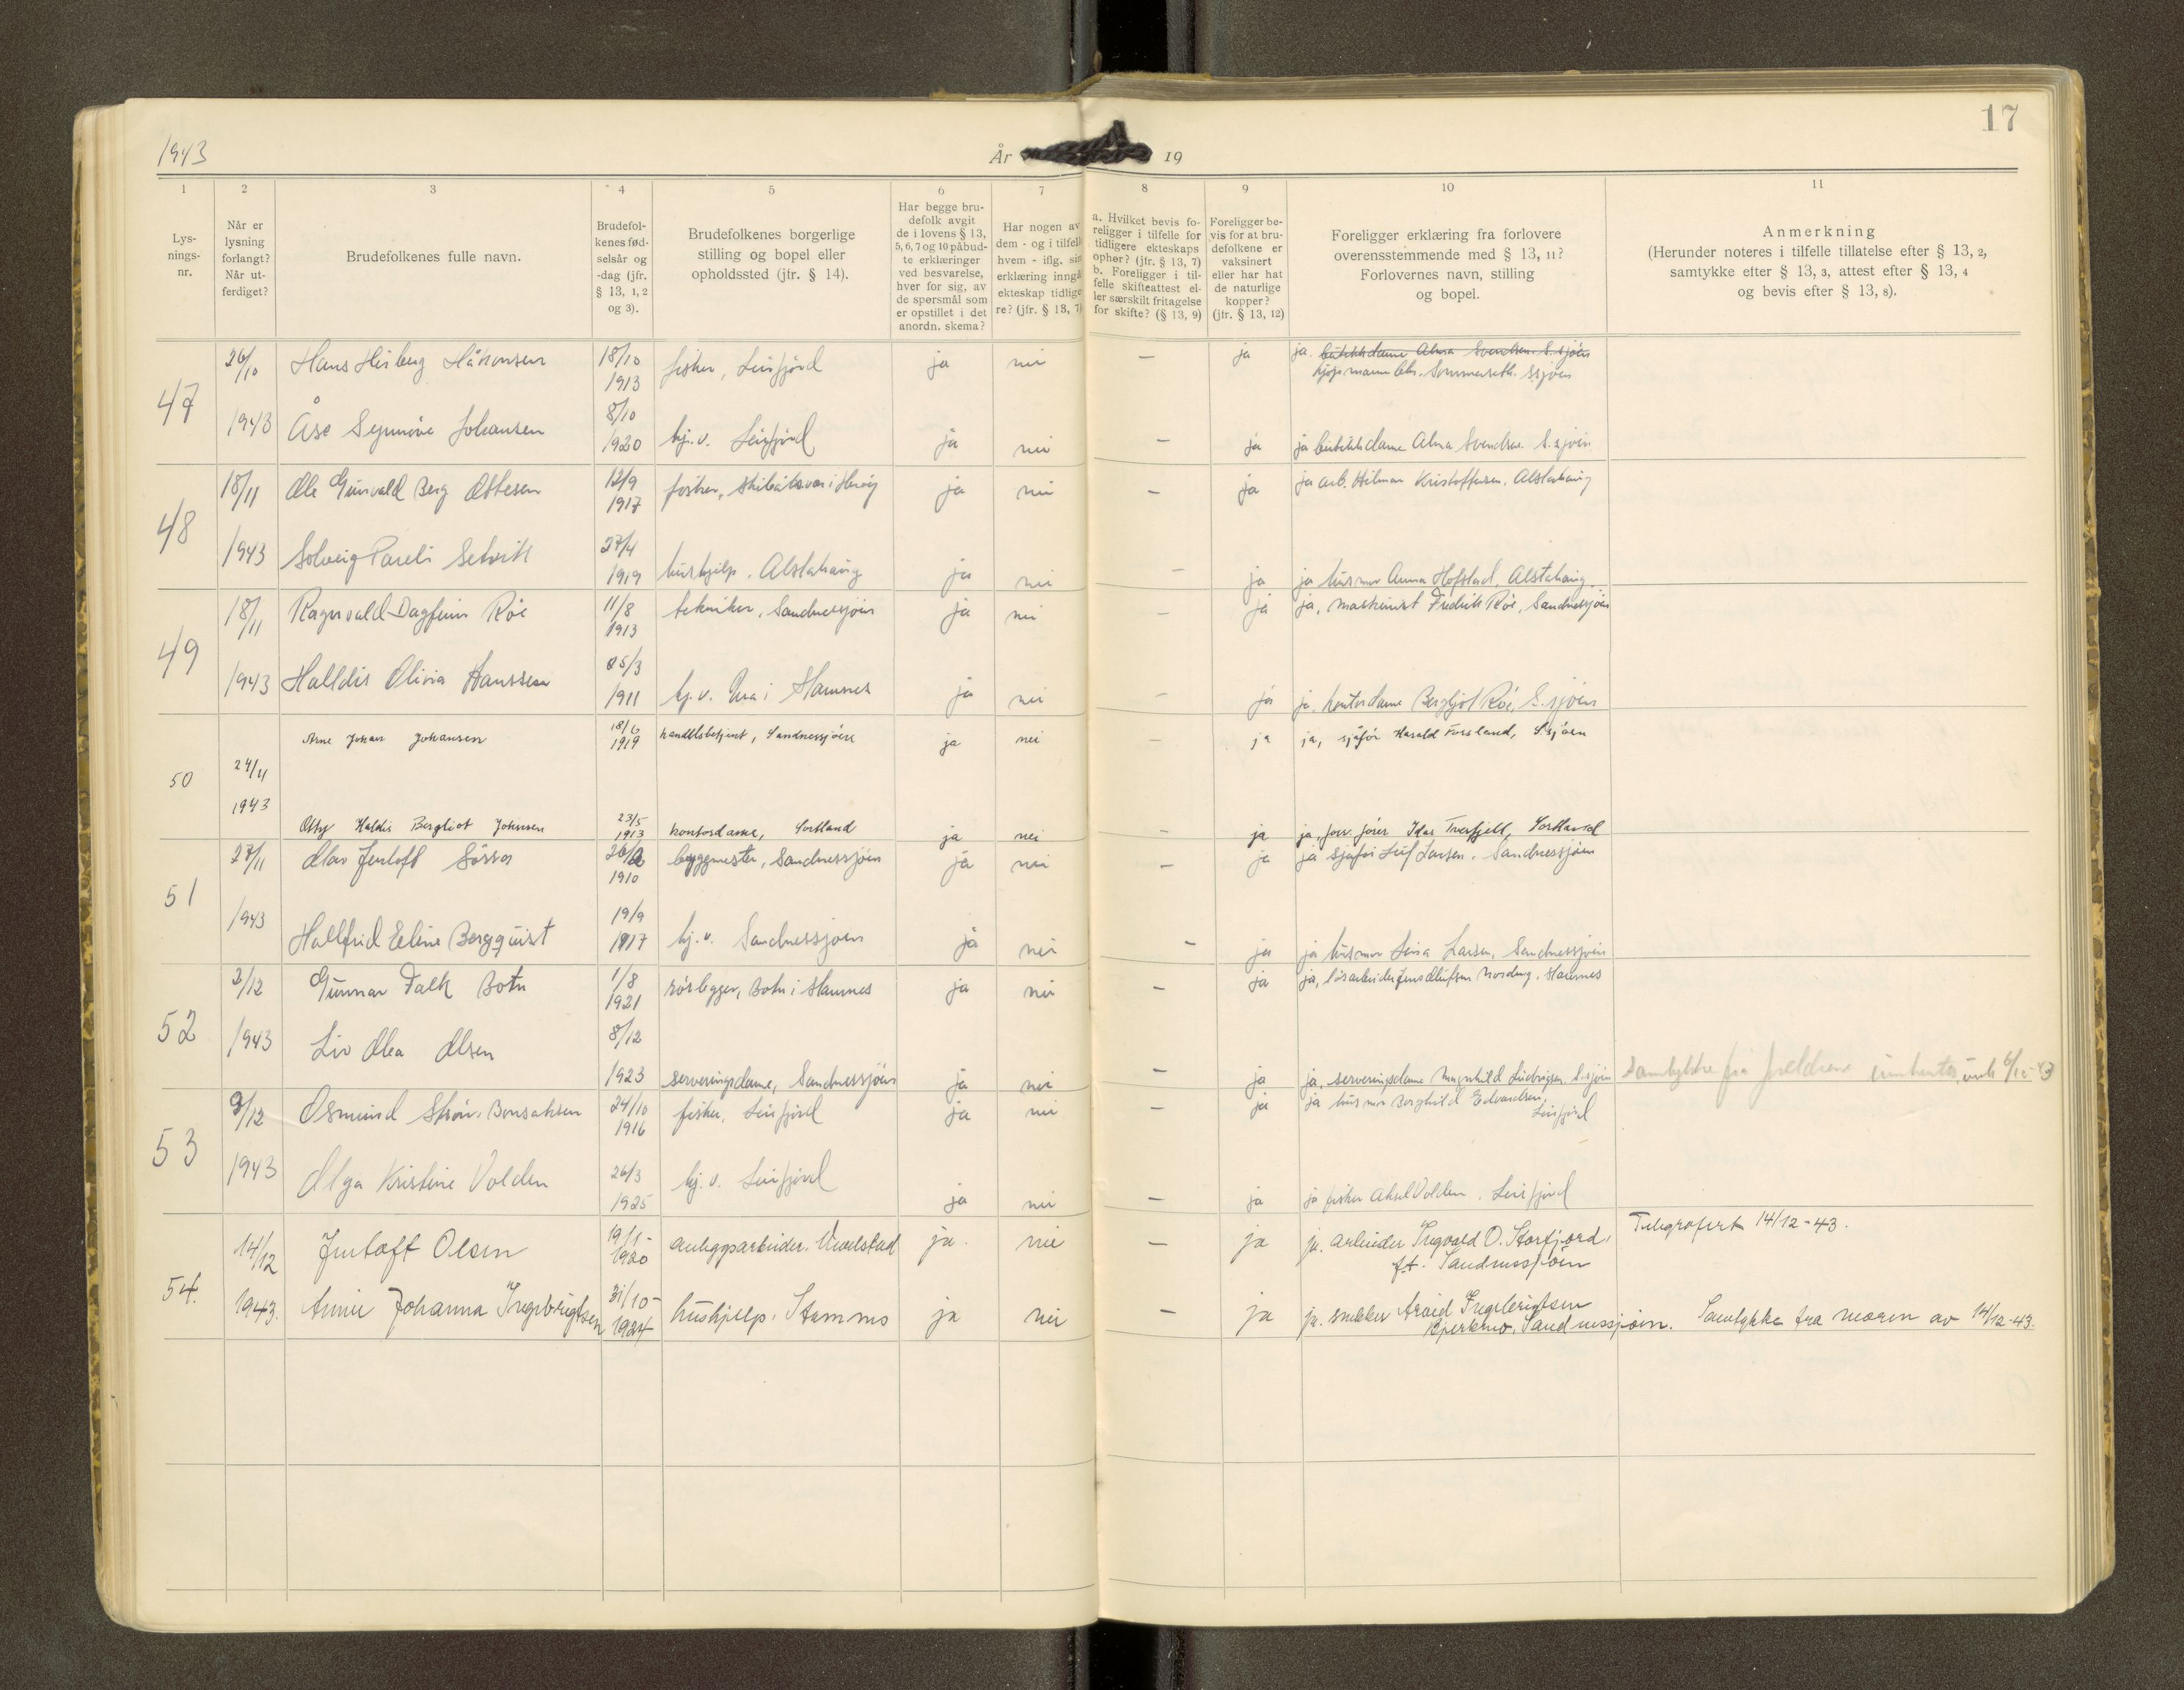 17
1943
År 19
1 2 3 4 5 6 7 8 9 10 11
Lys-
nings-
nr.
Når er
lysning
forlangt?
Når ut-
ferdiget?
Brudefolkenes fulle navn.
Brudefol-
kenes fød-
selsår og
-dag (jfr.
§ 13, 1, 2
og 3).
Brudefolkenes borgerlige
stilling og bopel eller
opholdssted (jfr. § 14).
Har begge bru-
defolk avgit
de i lovens § 13,
5, 6, 7 og 10 påbud-
te erklæringer
ved besvarelse,
hver for sig, av
de spørsmål som
er opstillet i det
anordn. skema?
Har nogen av
dem - og i tilfelle
hvem - iflg. sin
erklæring inngå
ekteskap tidlige
re? (jfr. § 13, 7)
a. Hvilket bevis fo-
religger i tilfelle for
tidligere ekteskaps
ophør? (jfr. § 13, 7)
b. Foreligger i til-
felle skifteattest el-
ler særskilt fritagelse
for skifte? (§ 13, 9)
Foreligger be-
vis for at bru-
defolkene er
vaksinert
eller har hat
de naturlige
kopper?
(jfr. § 13, 12)
Foreligger erklæring fra forlovere
overensstemmende med § 13, 11?
Forlovernes navn, stilling
og bopel.
Anmerkning
(Herunder noteres i tilfelle tillatelse efter § 13, 2,
samtykke efter § 13, 3, attest efter § 13, 4
og bevis efter § 13, 8).
47 26/10 Hans Herberg Håkonsen 18/10 1913 fisker, Leirfjord ja nei — ja ja. butikkdame Alma Svendsen. S.sjøen
kjøpmann Chr. Sommerseth. S.sjøen
1943 Åse Synnøve Johansen 8/10 1920 hj.v. Leirfjord ja nei — ja ja butikkdame Alma Svendsen. S.sjøen
48 18/11 Ole Gunvald Berg Ottesen 12/9 1917 fisker, Skibåtsvær i Herøy ja nei — ja ja arb. Hilmar Kristoffersen, Alstahaug
1943 Solveig Pareli Setvik 27/4 1919 hushjelp. Alstahaug ja nei — ja ja husmor Anna Hofstad, Alstahaug.
49 18/11 Ragnvald Dagfinn Røe 11/8 1913 tekniker, Sandnessjøen ja nei — ja ja, maskinist Fredrik Røe, Sandnessjøen
1943 Halldis Olivia Hanssen 25/3 1911 hj.v. Ura i Hamnes ja nei — ja ja. kontordame Bergljot Røe, S.sjøen
50 24/11 Arne Johan Johansen 18/6 1919 handelsbetjent, Sandnessjøen ja nei — ja ja, sjåfør Harald Forsland, S.sjøen
1943 Othy Haldis Bergliot Johnsen 23/5 1913 kontordame, Sortland ja nei — ja ja, forr.fører Idar Tverfjell, Sortland
51 27/11 Olav Jentoft Sørra 26/2 1910 byggmester, Sandnessjøen ja nei — ja ja sjåfør Leif Larsen. Sandnessjøen
1943 Hallfrid Eline Bergquist 19/9 1917 hj.v. Sandnessjøen ja nei — ja ja husmor Lina Larsen, Sandnessjøen
52 2/12 Gunnar Falk Botn 1/8 1921 rørlegger, Botn i Hamnes ja nei — ja ja, løsarbeider Jens Olufsen Nordvig. Hamnes
1943 Liv Olea Olsen 8/12 1923 serveringsdame, Sandnessjøen ja nei — ja ja, serveringsdame Magnhild Ludvigsen S.sjøen Samtykke fra foreldrene innhentes innh. 6/12-43
53 9/12 Osmund Strøm Bonsaksen 24/10 1916 fisker, Leirfjord ja nei — ja ja husmor Borghild Edvardsen,
Leirfjord
1943 Olga Kristine Volden 26/3 1925 hj.v. Leirfjord ja nei — ja ja fisker Aksel Volden. Leirfjord
54. 14/12 Jentoft Olsen 19/1- 1920 anleggsarbeider. Vevelstad ja. nei — ja ja. arbeider Ingvald O. Storfjord,
f.t. Sandnessjøen
Telegrafert 14/12-43.
1943. Annie Johanna Ingebrigtsen 31/10- 1924 hushjelp, Stamnes ja nei — ja ja. snekker Arvid Ingebrigtsen
Bjerkmo, Sandnessjøen. Samtykke fra moren av 14/12-43.